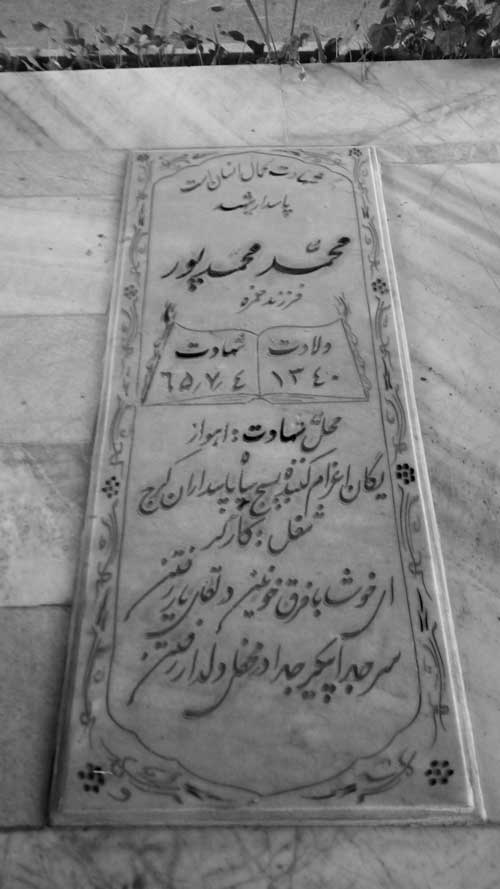 شهادت کمال انسان است
پاسدار شهید
محمد محمدپور
فرزند حمزه
ولادت شهادت
۱۳۴۰ ۶۵٫۷٫۴
محل شهادت : اهواز
یگان اعزام کننده بسیج سپاه پاسداران کرج
شغل : کارگر
ای خوشا با فرق خونین در لقای یار رفتن
سر جدا پیکر جدا در محفل دلدار رفتن